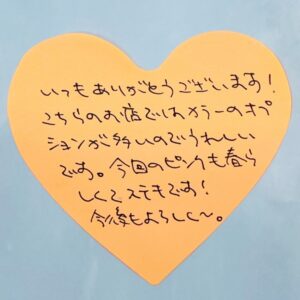 いつもありがとうございます!
こちらのお店ではカラーのオプ
ションが多いのでうれしい
です。今回のピンクも春ら
しくてステキです!
今後もよろしく〜。